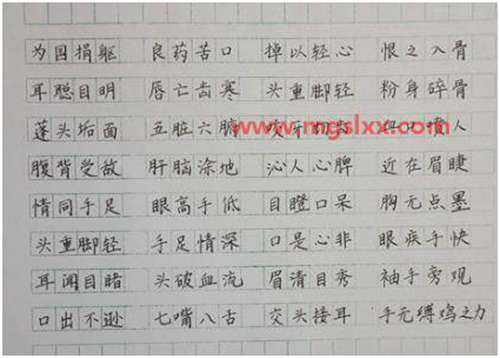 为国捐躯 良药苦口 掉以轻心 恨之入骨
耳聪目明 唇亡齿寒 头重脚轻 粉身碎骨
蓬头垢面 五脏六腑 喷人
www.mgslxx.com
腹背受敌 肝脑涂地 沁人心脾 近在眉睫
情同手足 眼高手低 目瞪口呆 胸无点墨
头重脚轻 手足情深 口是心非 眼疾手快
耳闻目睹 头破血流 眉清目秀 袖手旁观
口出不逊 七嘴八舌 交头接耳 手无缚鸡之力